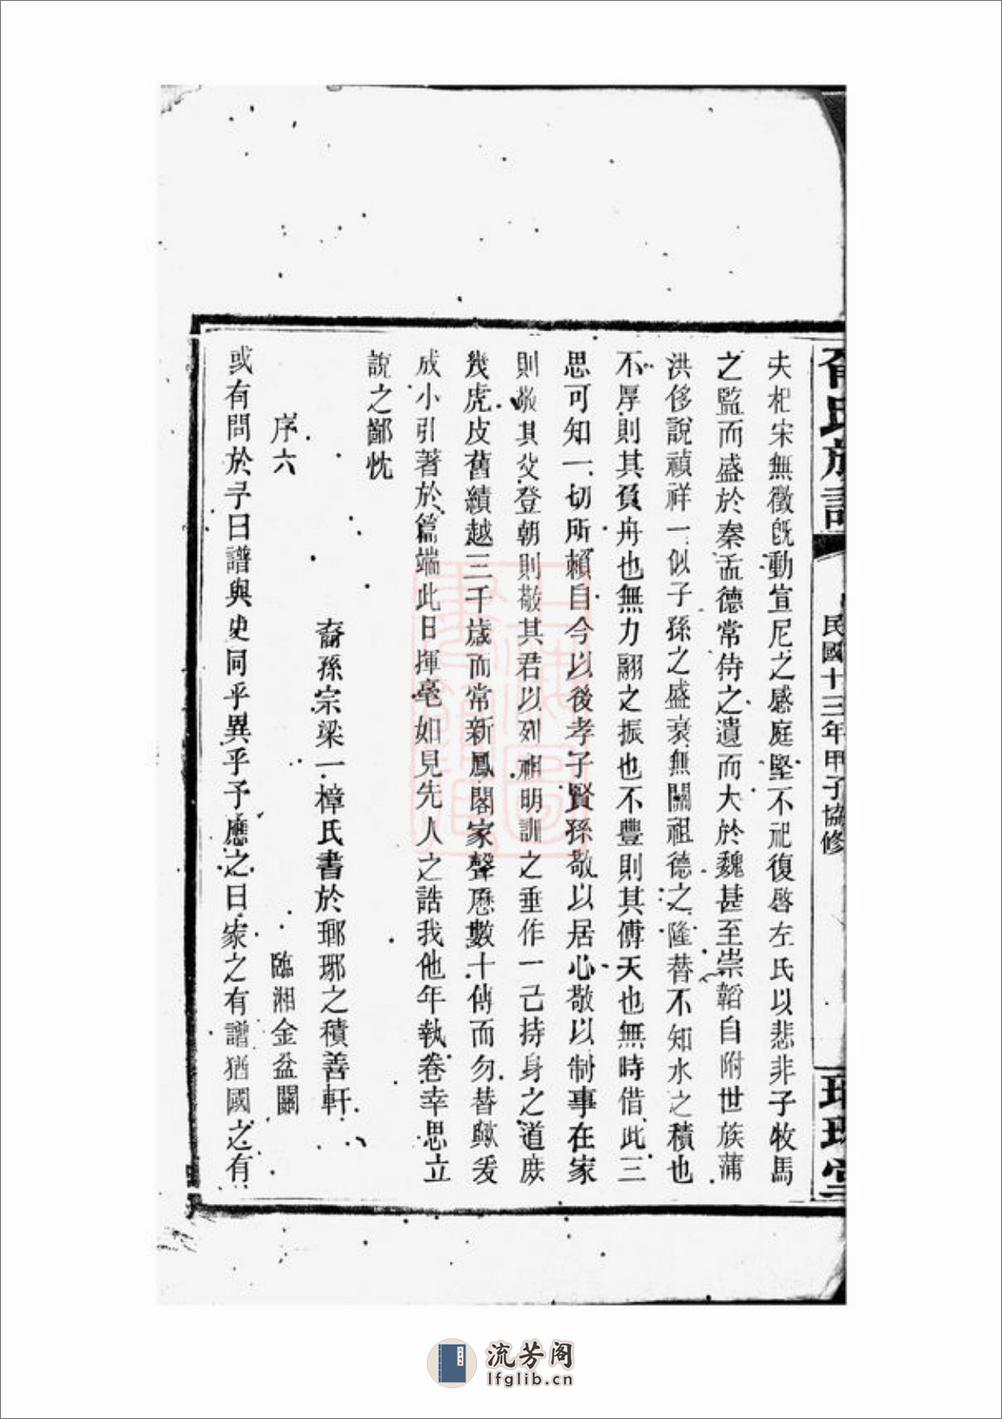 氏族譜
民國十三年甲子協修
夫杞宋無徵旣動宣尼之感庭堅不祀復啓左氏以悲非子牧馬
之監而盛於秦孟德常侍之遺而大於魏甚至崇韜自附世族蒲
洪侈說禎祥一似子孫之盛衰無關祖德之隆替不知水之積也
不厚則其負舟也無力翮之振也不豐則其傅天也無時借此三
思可知一切所賴自今以後孝子賢孫敬以居心敬以制事在家
則敬其父登朝則敬其君以列祖明訓之垂作一己持身之道庶
幾虎皮舊績越三千歲而常新鳳閣家聲歷數十傳而勿替歟爰
成小引著於篇端此日揮毫如見先人之誥我他年執卷幸思立
說之鄙忱
裔孫宗梁一樟氏書於瑯琊之積善軒
序六
臨湘金盆關
或有問於予曰譜與史同乎異乎予應之曰家之有譜猶國之有
流芳阁
lfglib.cn